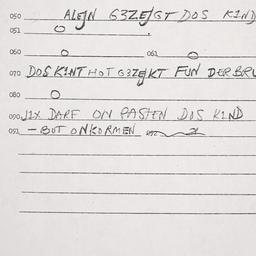 050 ALEJN G3ZEJGT DOS KIND
051 O
060 O 061 O
070 DOS KINT HOT G3ZEJKT FUN DER BRU
080 O
090 JIX DARF ON PASTEN DOS KIND
091 — BUT ONKORMEN 092